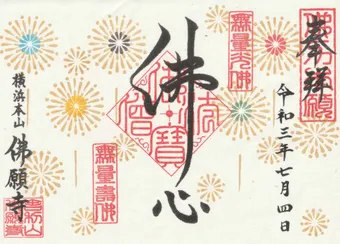 奉拝
令和三年七月四日
佛心
無量光佛
佛法僧寶
無量壽佛
横浜本山
佛願寺